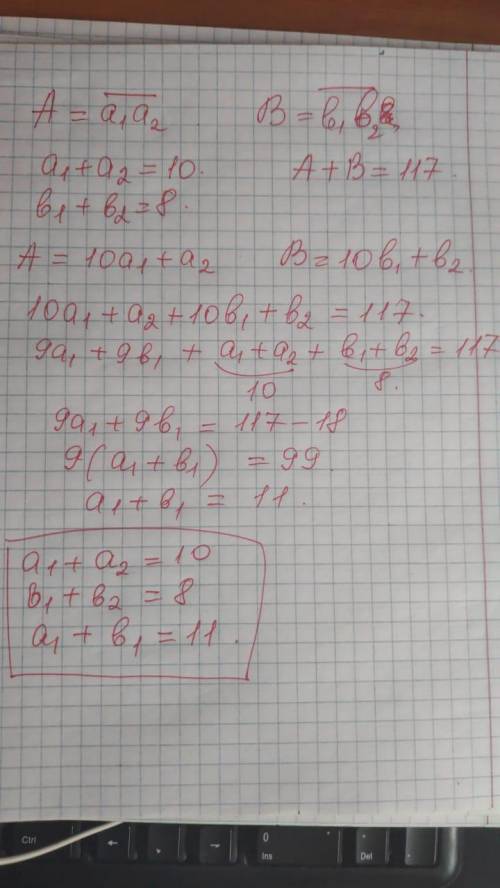 A = a₁a₂ B = b₁b₂
a₁ + a₂ = 10. A + B = 117.
b₁ + b₂ = 8.
A = 10a₁ + a₂ B = 10b₁ + b₂
10a₁ + a₂ + 10b₁ + b₂ = 117.
9a₁ + 9b₁ + a₁ + a₂ + b₁ + b₂ = 117
10 8.
9a₁ + 9b₁ = 117 - 18
9(a₁ + b₁) = 99
a₁ + b₁ = 11.
a₁ + a₂ = 10
b₁ + b₂ = 8
a₁ + b₁ = 11.
Ctrl 0 .
Ins Del